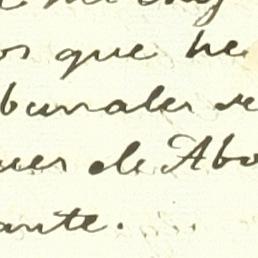 os que he
bunales de
ques de Abo
ante.